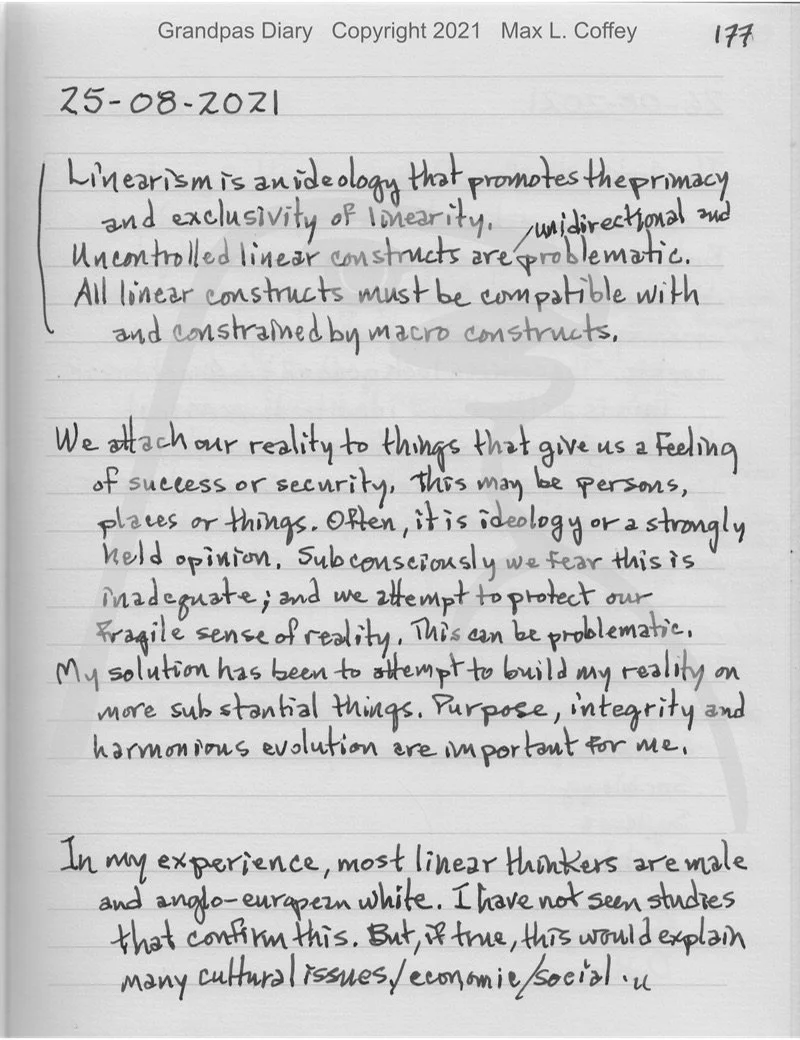 Grandpas Diary Copyright 2021 Max L. Coffey
177
25-08-2021
Linearism is an ideology that promotes the primacy
and exclusivity of linearity.
unidirectional and
Uncontrolled linear constructs are problematic.
All linear constructs must be compatible with
and constrained by macro constructs.
We attach our reality to things that give us a feeling
of success or security. This may be persons,
places or things. Often, it is ideology or a strongly
held opinion. Subconsciously we fear this is
inadequate; and we attempt to protect our
fragile sense of reality. This can be problematic.
My solution has been to attempt to build my reality on
more substantial things. Purpose, integrity and
harmonious evolution are important for me.
In my experience, most linear thinkers are male
and anglo-european white. I have not seen studies
that confirm this. But, if true, this would explain
many cultural issues/economic/social.